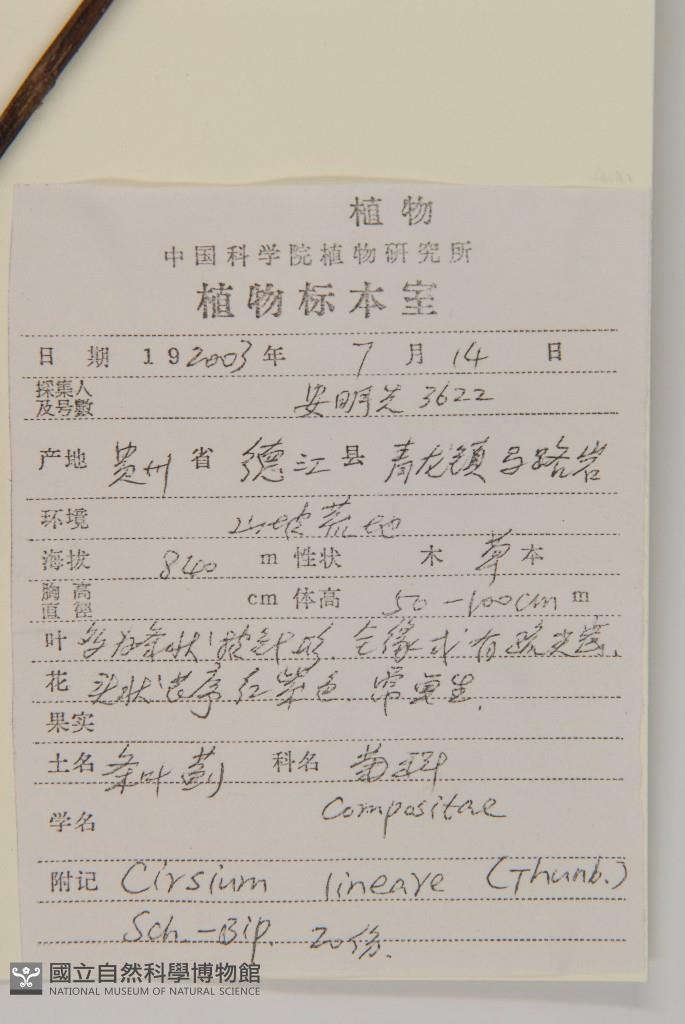 植物
中国科学院植物研究所
植物标本室
日 期 19 2003 年 7 月 14 日
採集人及号数 安明先 3622
产地 贵州 省 德江 县 青龙镇 马路岩
环境 山坡荒地
海拔 840 m 性状 木 草 本
胸高直径 cm 体高 50-100cm m
叶 多为条状披针形. 全缘或有疏尖齿.
花 头状花序 红紫色. 常单生.
果实
土名 条叶蓟 科名 菊科
学名 Compositae
附记 Cirsium lineare (Thunb.)
Sch.-Bip. 20份.
國立自然科學博物館
NATIONAL MUSEUM OF NATURAL SCIENCE